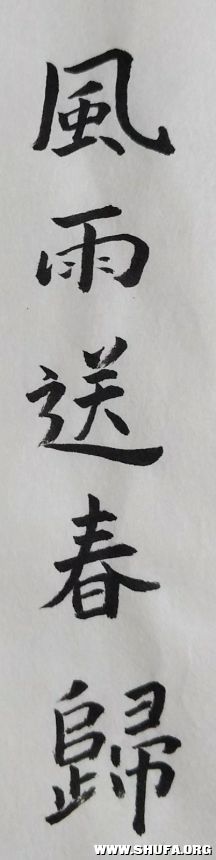 風雨送春歸
WWW.SHUFA.ORG